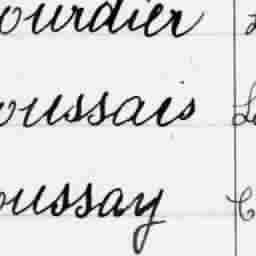 ourdier
oussais
oussay